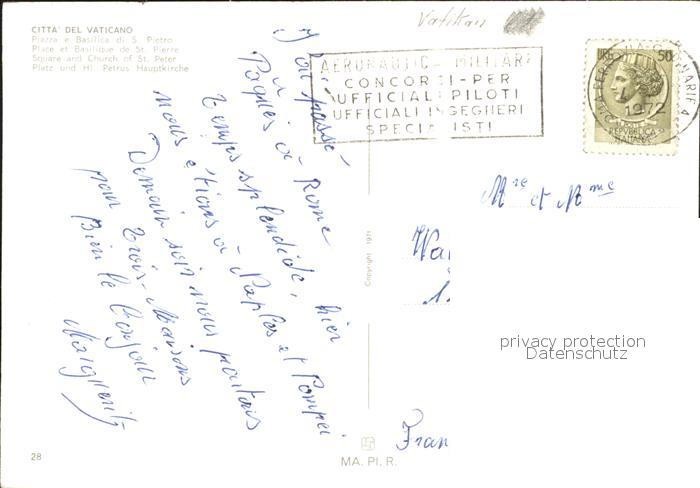 CITTA' DEL VATICANO
Piazza e Basilica di S. Pietro
Place et Basilique de St. Pierre
Square and Church of St. Peter
Platz und Hl. Petrus Hauptkirche
Vatikan
AERONAUTICA MILITARE
CONCORSI-PER
UFFICIALI PILOTI
UFFICIALI INGEGNERI
SPECIALISTI
LIRE 50
1972
REPVBBLICA
ITALIANA
J'ai passé
Pâques à Rome
temps splendide, hier
nous étions à Naples et Pompei
Demain soir nous partons
pour Trois-Maisons
Bien le bonjour
Marguerite
Mre et Mme
Wa
Fran
Copyright 1971
privacy protection
Datenschutz
28
MA. PI. R.